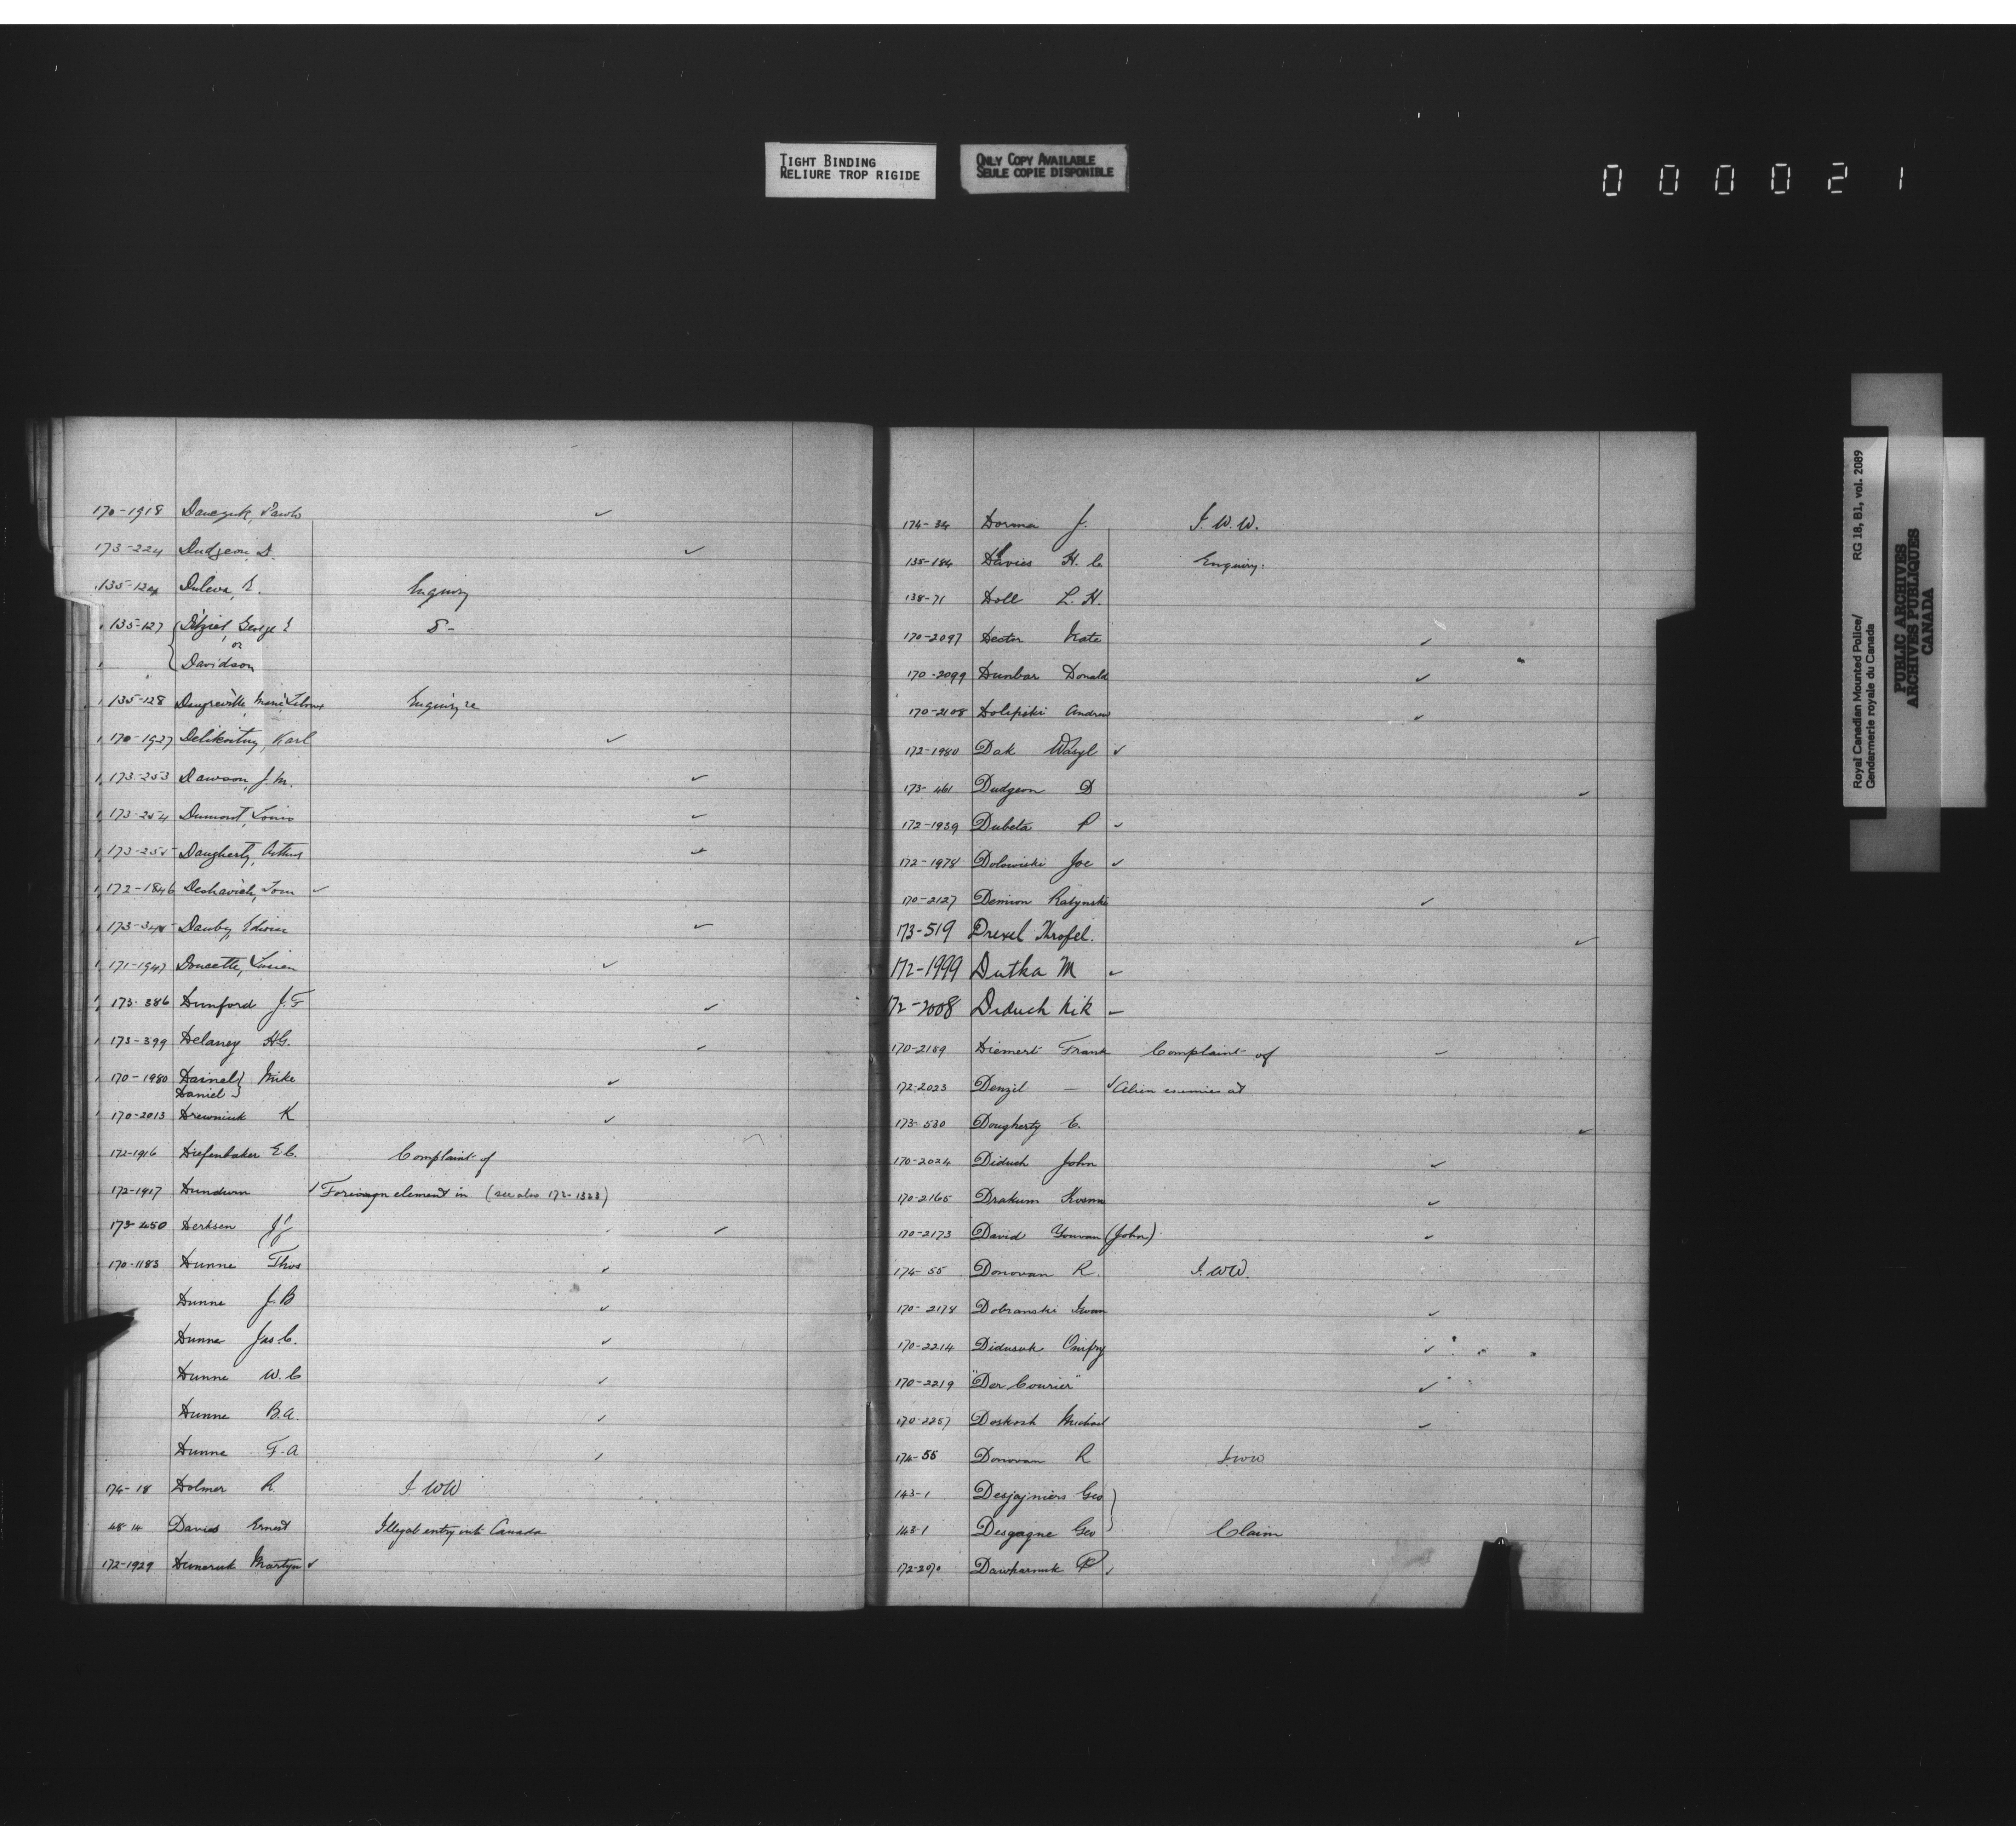 TIGHT BINDING
RELIURE TROP RIGIDE
ONLY COPY AVAILABLE
SEULE COPIE DISPONIBLE
000021
170-1918 Pawlo ✓
173-224 Dudgeon, D. ✓
135-124 Duleva, Enquiry
135-127 George
or
Davidson
135-128 Marie Enquiry re
170-1927 Karl ✓
173-253 Dawson, J. M. ✓
173-254 Dumont, Louis ✓
173-255 Daugherty, Arthur ✓
172-1846 Deshavich, Tom ✓
Danby, Edwin ✓
171-1947 Doucette, Lucien ✓
173-386 Dunford J. F ✓
173-399 Delaney H.G. ✓
170-1980 Dainel } Mike ✓
Daniel }
170-2013 Drewniuk K ✓
172-1916 Diefenbaker E.C. Complaint of
172-1917 Dundurn ✓ Foreivagn element in (see also 172-1323)
173-450 Derksen J J ✓
170-1183 Dunne Thos ✓
Dunne J. B ✓
Dunne Jas. C. ✓
Dunne W. C ✓
Dunne B.A. ✓
Dunne F. A ✓
174-18 Dolmer R. I. W W
48-14 Davies Ernest Illegal entry into Canada
172-1929 Martyn ✓
174-34 Dorma J. I. W. W.
135-184 Davies H. C Enquiry.
138-71 Doll L. H.
170-2097 Dector Kate ✓
170-2099 Dunbar Donald ✓
170-2108 Andrew ✓
172-1980 Dak Wasyl ✓
173-461 Dudgeon D ✓
172-1939 Dubeta P ✓
172-1978 Dolowiski Joe ✓
170-2127 Demion Ratynski ✓
173-519 Drexel Throfel. ✓
172-1999 Dutka M ✓
172-2008 Diduch Nik ✓
170-2159 Diemert Frank Complaint of ✓
172-2023 Denzil — ✓ Alien enemies at
173-530 Dougherty E. ✓
170-2024 Diduch John ✓
170-2165 Drakum Kosma ✓
170-2173 David Youvan (John) ✓
174-55 Donovan R. I. W W.
170-2178 Dobranski Iwan ✓
170-2214 Didusuk Onifry ✓
170-2219 "Der Courier" ✓
170-2257 Doskosh Michael ✓
174-55 Donovan R I W W
143-1 Desjajniers Geo }
143-1 Desgagne Geo } Claim
172-2070 ✓
Royal Canadian Mounted Police/
Gendarmerie royale du Canada
RG 18, B1, vol. 2089
PUBLIC ARCHIVES
ARCHIVES PUBLIQUES
CANADA